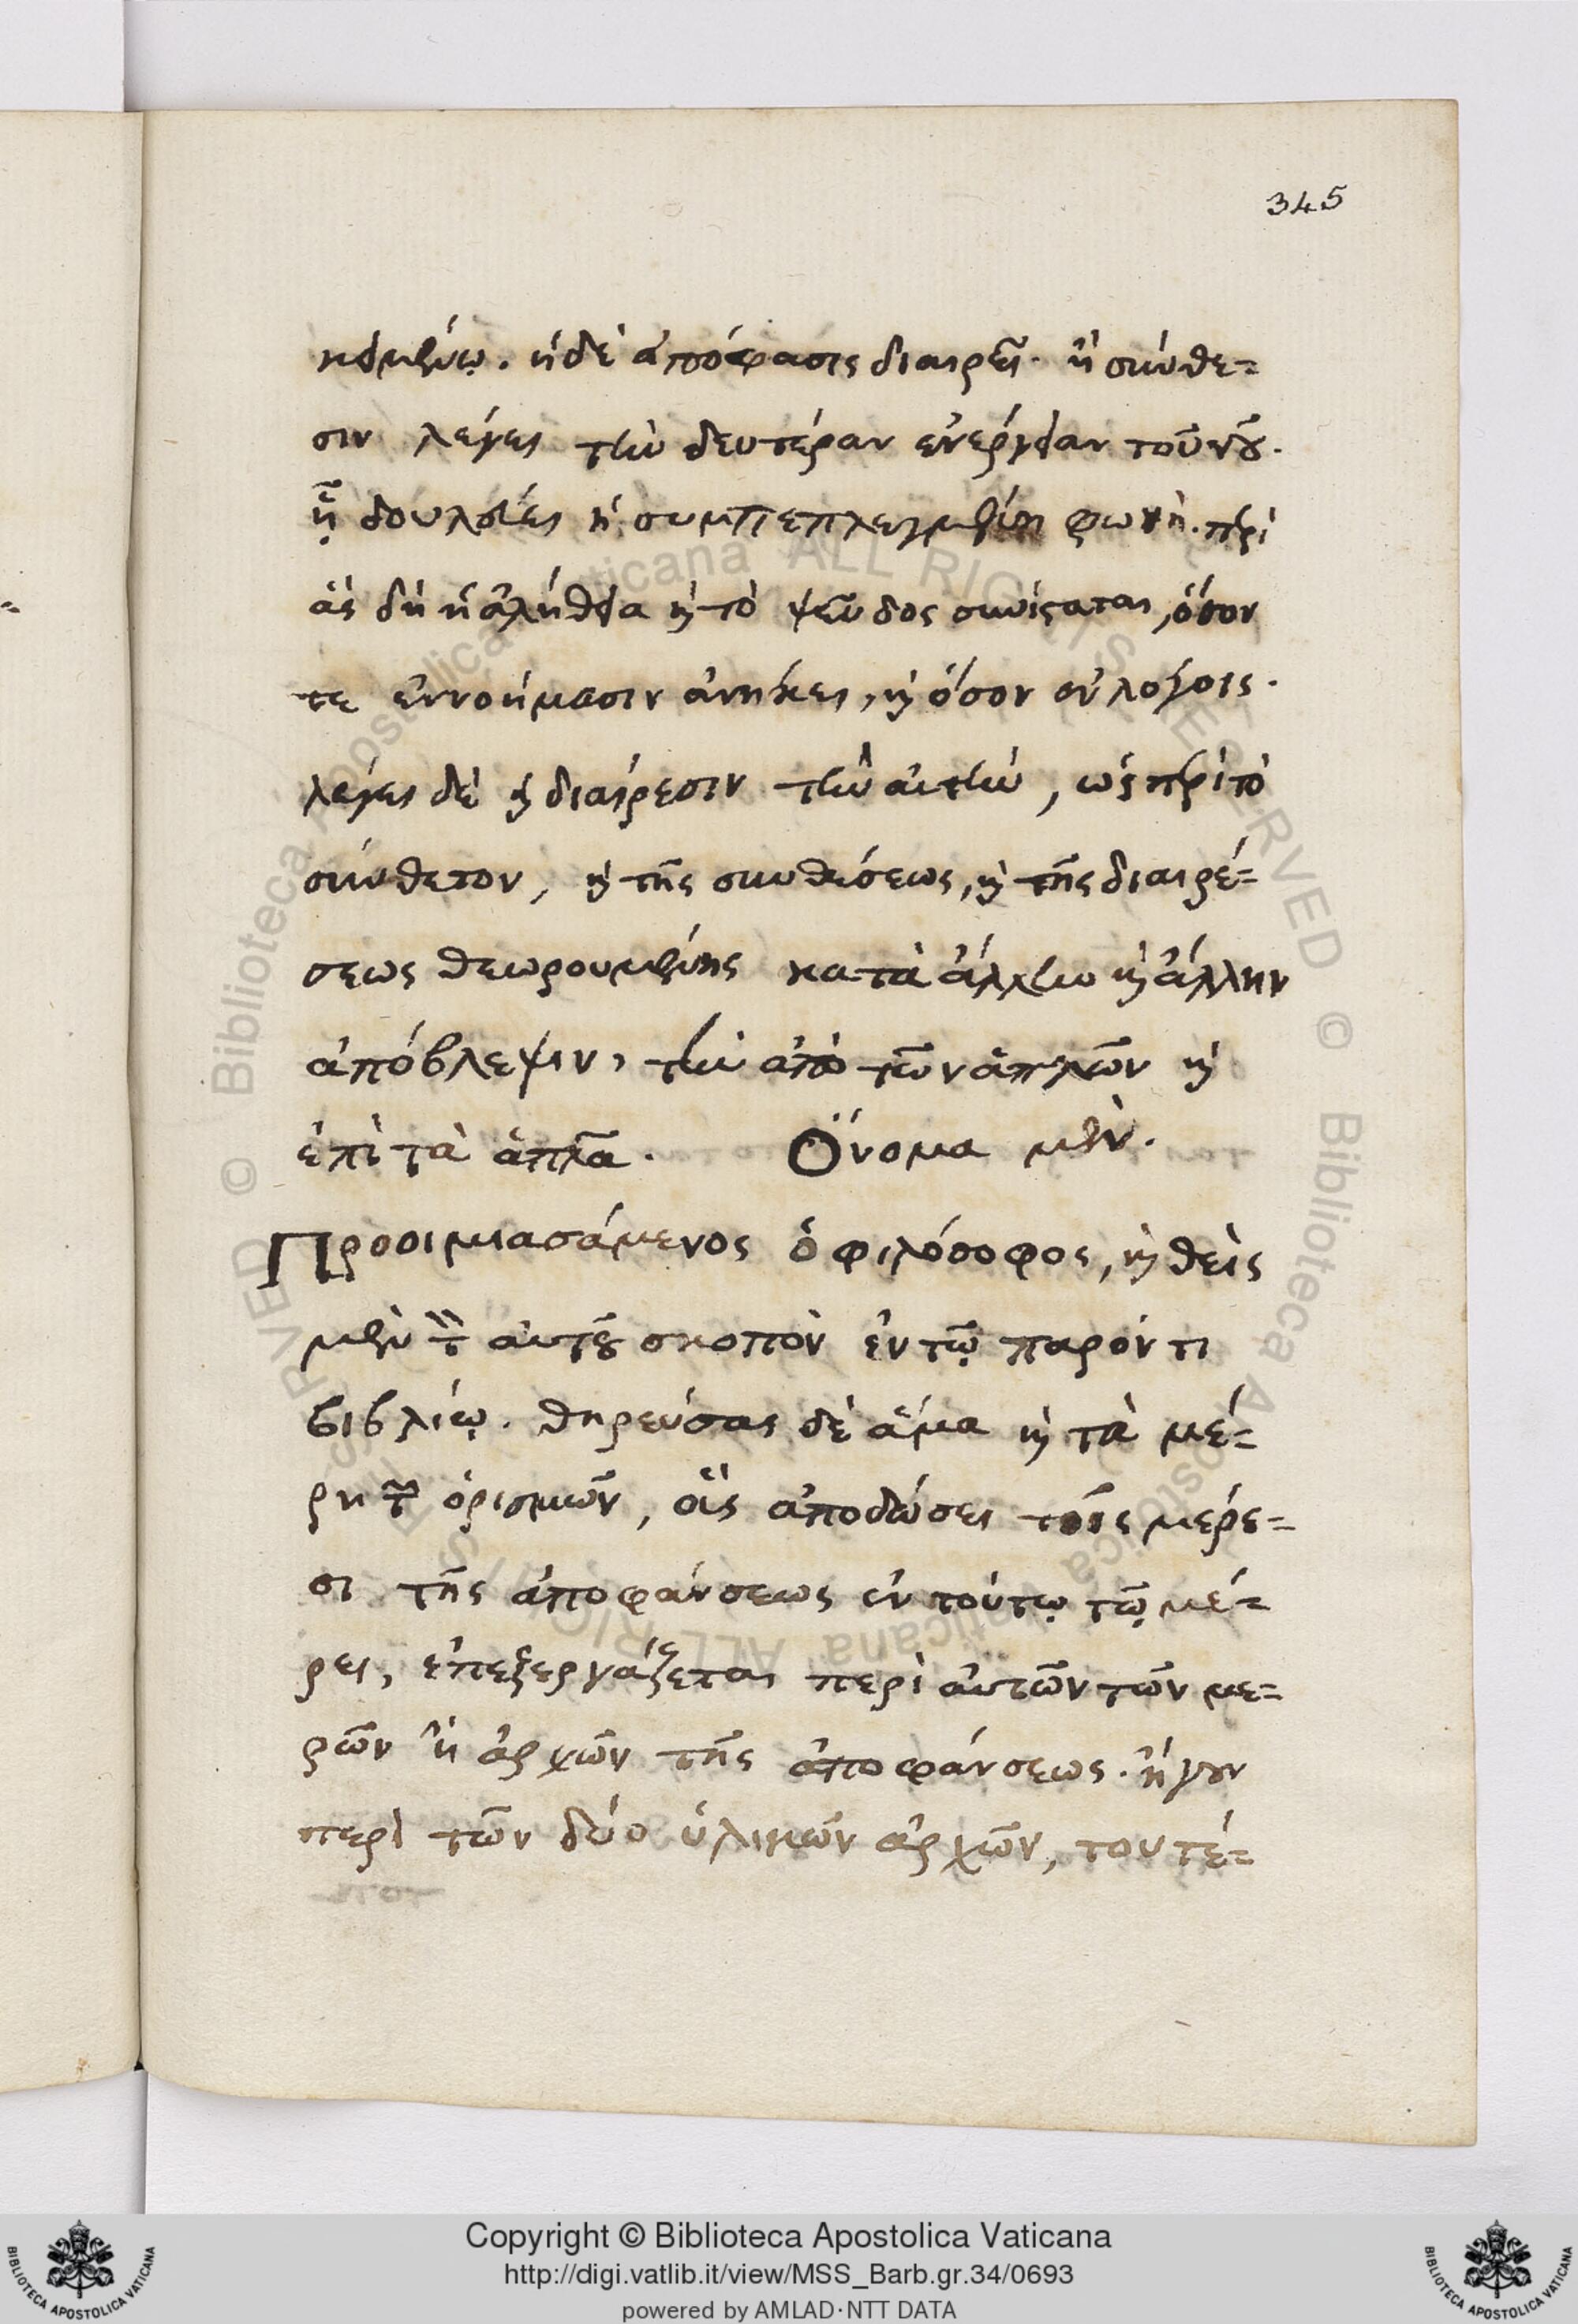 345
κειμένῳ. ἡ δὲ ἀπόφασις διαιρεῖ. ἢ σύνθε=
σιν λέγει τὴν δευτέραν ἐνέργειαν τοῦ νοῦ.
ᾗ δουλεύει ἡ συμπεπλεγμένη φωνή. περὶ
ἃς δὴ ἡ ἀλήθεια καὶ τὸ ψεῦδος συνίσταται, ὅσον
τε ἐννοήμασιν ἀνήκει, καὶ ὅσον ἐν λόγοις.
λέγει δὲ καὶ διαίρεσιν τὴν αὐτὴν, ὡς περὶ τὸ
σύνθετον, καὶ τῆς συνθέσεως, καὶ τῆς διαιρέ=
σεως θεωρουμένης κατὰ ἄλλην καὶ ἄλλην
ἀπόβλεψιν, τὴν ἀπὸ τῶν ἁπλῶν καὶ
ἐπὶ τὰ ἁπλᾶ. Ὄνομα μὲν.
Προοιμιασάμενος ὁ φιλόσοφος, καὶ θεὶς
μὲν τὸν αὐτοῦ σκοπὸν ἐν τῷ παρόντι
βιβλίῳ. θηρεύσας δὲ ἅμα καὶ τὰ μέ=
ρη τῶν ὁρισμῶν, οἷς ἀποδώσει τοῖς μέρε=
σι τῆς ἀποφάνσεως ἐν τούτῳ τῷ μέ=
ρει, ἐπεξεργάζεται περὶ αὐτῶν τῶν με=
ρῶν ἢ ἀρχῶν τῆς ἀποφάνσεως. ἤγουν
περὶ τῶν δύο ὑλικῶν ἀρχῶν, τουτέ=
Copyright © Biblioteca Apostolica Vaticana
http://digi.vatlib.it/view/MSS_Barb.gr.34/0693
powered by AMLAD·NTT DATA